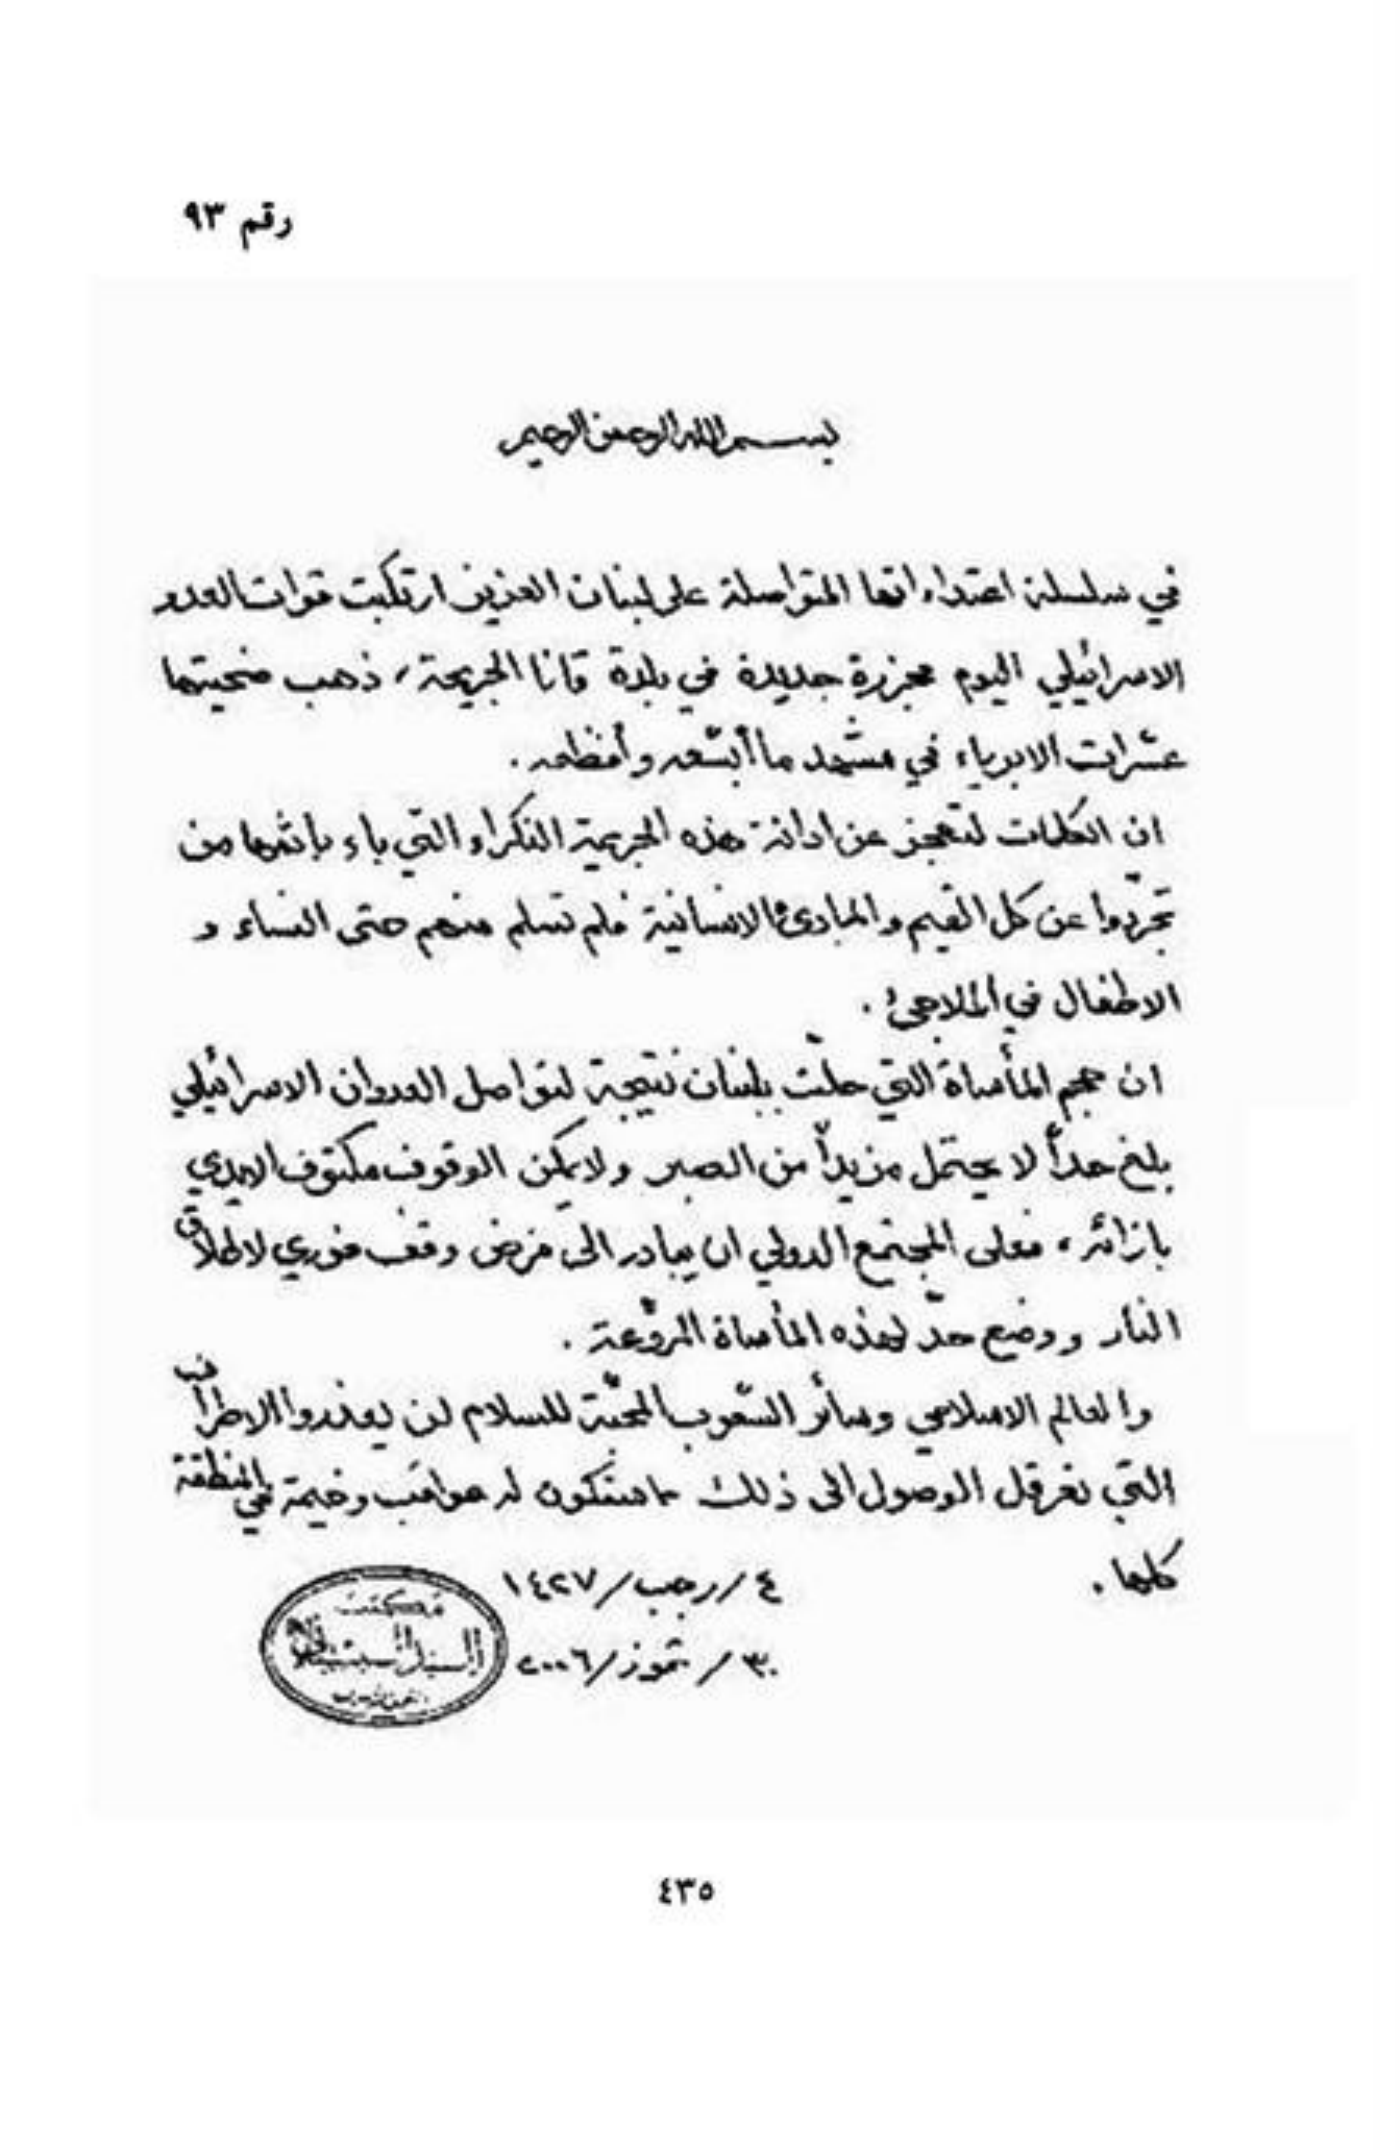 رقم ٩٣
بسم الله الرحمن الرحيم
في سلسلة اعتداءاتها المتواصلة على لبنان العزيز ارتكبت قوات العدو
الاسرائيلي اليوم مجزرة جديدة في بلدة قانا الجريحة، ذهب ضحيتها
عشرات الابرياء في مشهد ما أبشعه وأفظعه .
ان الكلمات لتعجز عن ادانة هذه الجريمة النكراء التي باء بإثمها من
تجرّدوا عن كل القيم والمبادئ الانسانية فلم تسلم منهم حتى النساء و
الاطفال في الملاجئ .
ان حجم المأساة التي حلّت بلبنان نتيجة لتواصل العدوان الاسرائيلي
بلغ حداً لا يحتمل مزيداً من الصبر ولا يمكن الوقوف مكتوف الايدي
بازائه ، فعلى المجتمع الدولي ان يبادر الى فرض وقف فوري لاطلاق
النار ووضع حدّ لهذه المأساة المروّعة .
والعالم الاسلامي وسائر الشعوب المحبّة للسلام لن يعذروا الاطراف
التي تعرقل الوصول الى ذلك مما ستكون له عواقب وخيمة في المنطقة
كلها .
٤ /رجب/ ١٤٢٧
٣٠ / تموز/ ٢٠٠٦
مكتب
السيد السيستاني
النجف الاشرف
٤٣٥